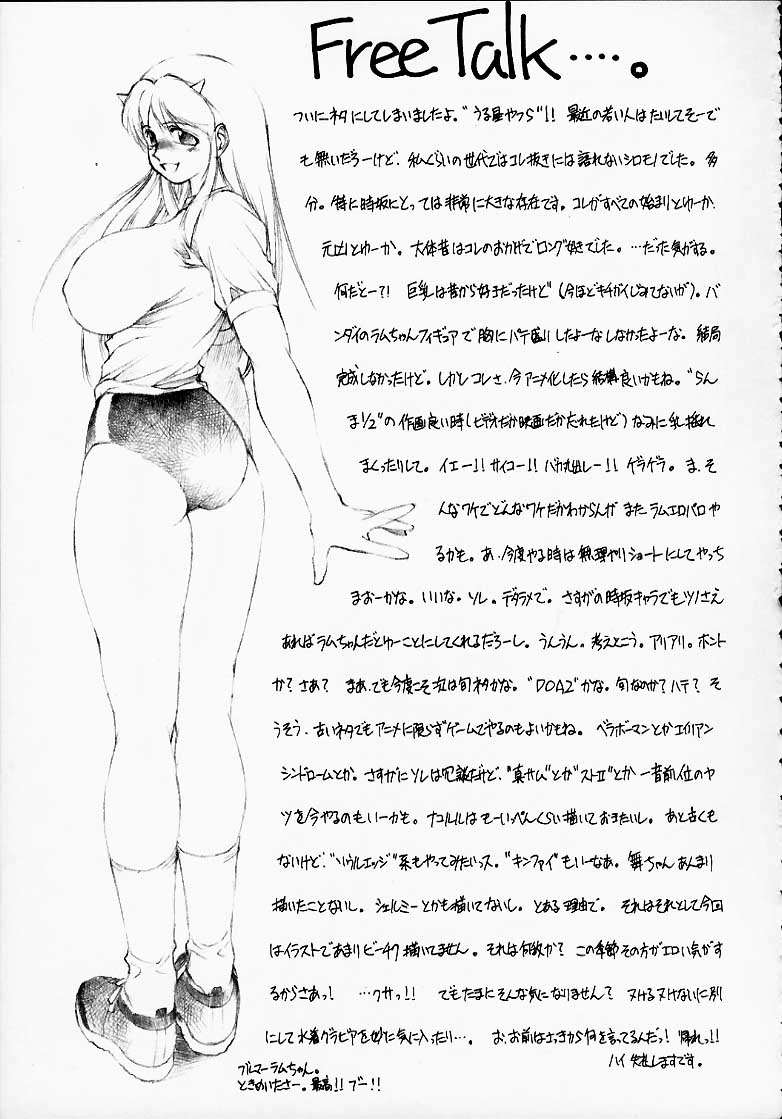 Free Talk‥‥。
ついにネタにしてしまいましたよ。"うる星やつら"!! 最近の若い人はたいしてそーで
も無いだろーけど、私ぐらいの世代ではコレ抜きには語れないシロモノでした。多
分。特に時坂にとっては非常に大きな存在です。コレがすべての始まりとゆーか、
元凶とゆーか。大体昔はコレのおかげでロング好きでした。…だった気がする。
何だとー?! 巨乳は昔から好きだったけど(今ほどキチガイじみてないが)。バ
ンダイのラムちゃんフィギュアで胸にパテ盛りしたよーなしなかったよーな。結局
完成しなかったけど。しかしコレさ、今アニメ化したら結構良いかもね。"らん
ま1/2"の作画良い時(ビデオだか映画だか忘れたけど)なみに乳揺れ
まくったりして。イエー!! サイコー!! バカ丸出しー!! ゲラゲラ。ま、そ
んなワケでどんなワケだかわからんが またラムエロパロや
るかも。あ、今度やる時は無理やりショートにしてやっち
まおーかな。いいな。ソレ。デタラメで。さすがの時坂キャラでもツノさえ
あればラムちゃんだとゆーことにしてくれるだろーし。うんうん。考えとこう。アリアリ。ホント
か? さあ? まあ、でも今度こそ次は旬ネタかな。"DOA2"かな。旬なのか? ハテ? そ
うそう、古いネタでもアニメに限らずゲームでやるのもよいかもね。ベラボーマンとかエイリアン
シンドロームとか。さすがにソレは冗談だけど、"真サム"とか"ストⅡ"とか 一昔前位のヤ
ツを今やるのもいーかも。ナコルルはもーいっぺんくらい描いておきたいし。あと古くも
ないけど、"ソウルエッジ"系もやってみたいっス。"キンファイ"もいーなあ。舞ちゃんあんまり
描いたことないし。シェルミーとかも描いてないし。とある理由で。 それはそれとして今回
はイラストであまりビーチク描いてません。それは何故か? この季節その方がエロい気がす
るからさあっ! …クサっ!! でもたまにそんな気になりません? ヌけるヌけないに別
にして水着グラビアを妙に気に入ったり…。お、お前はさっきから何を言ってるんだっ! 帰れっ!!
ハイ 失礼しますです。
ブルマーラムちゃん。
ときめいたさー。最高!! ブー!!